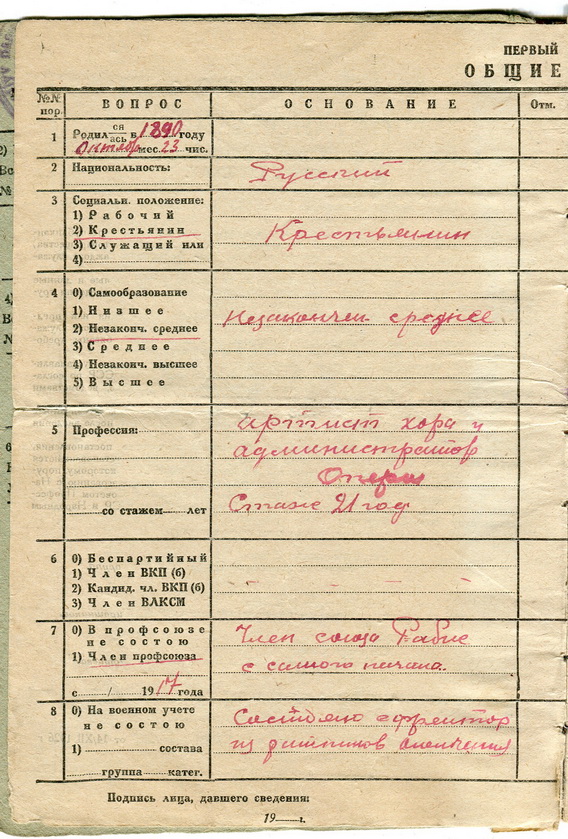 ПЕРВЫЙ
ОБЩИЕ
№№ пор. ВОПРОС ОСНОВАНИЕ Отм.
1 Родил ся ась в 1890 году
Октябр мес. 23 чис.
2 Национальность: Русский
3 Социальн. положение:
1) Рабочий
2) Крестьянин Крестьянин
3) Служащий или
4)
4 0) Самообразование
1) Низшее
2) Незаконч. среднее Незакончен среднее
3) Среднее
4) Незаконч. высшее
5) Высшее
5 Профессия: артист хора и
администратор
Оперы
со стажем лет Стаж 21 год
6 0) Беспартийный
1) Член ВКП (б)
2) Кандид. чл. ВКП (б)
3) Член ВЛКСМ
7 0) В профсоюзе Член союза Рабис
не состою
1) Член профсоюза с самого начала.
с / 1917 года
8 0) На военном учете Состою ефрейтор
не состою
1) состава из ратников ополчения
группа катег.
Подпись лица, давшего сведения:
19 г.